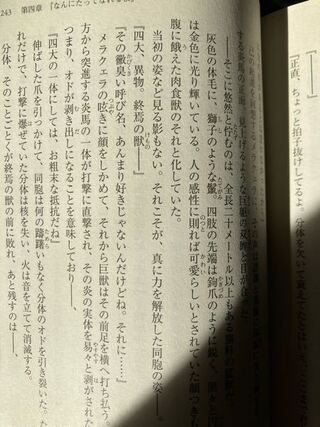 243　第四章　『なんにだってなれる
『正直、ちょっと拍子抜けしてるよ。分体を欠いて衰えてたとはいえ、ここまで
――そこに悠然と佇むのは、全長二十メートル以上もある
灰色の体毛に、獅子のような鬣。四肢の先端は鉤爪のように鋭く、
は金色に光り輝いている。人の感性に則れば可愛らしいとされていた顔つきも
腹に餓えた肉食獣のそれと化していた。
当初の姿など見る影もない。それこそが、真に力を解放した同胞の姿――。
『四大、異物。終焉の獣――』
『その黴臭い呼び名、あんまり好きじゃないんだけどね。それに……』
メラクェラの呟きに顔をしかめて、それから巨獣はその前足を横へ打ち払う。
方から突進する炎馬の一体が打撃に直撃され、その炎の実体を易々と剥がされた
つまり、オドが剥き出しになることを意味しており――、
『四大の一体にしては、お粗末な抵抗だね』
伸ばした爪を引っかけて、同胞は何の躊躇いもなく分体のオドを引き裂いた。た
れだけで、打撃に爆ぜていた分体は核を失い、火は音を立てて消滅する。
分体、そのことごとくが終焉の獣の前に敗れ、あと残すのは――、